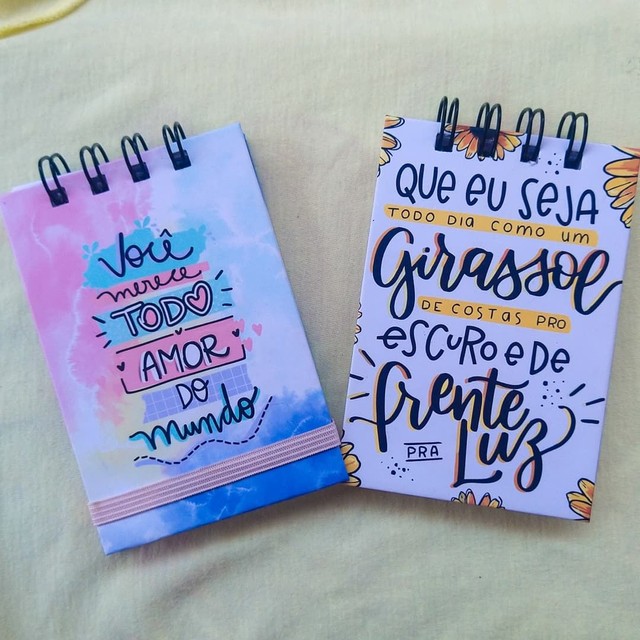 Você
merece
TODO
AMOR
DO
mundo
QUE EU SEJA
TODO DIA COMO UM
Girassol
DE COSTAS PRO
ESCURO E DE
frente
PRA Luz